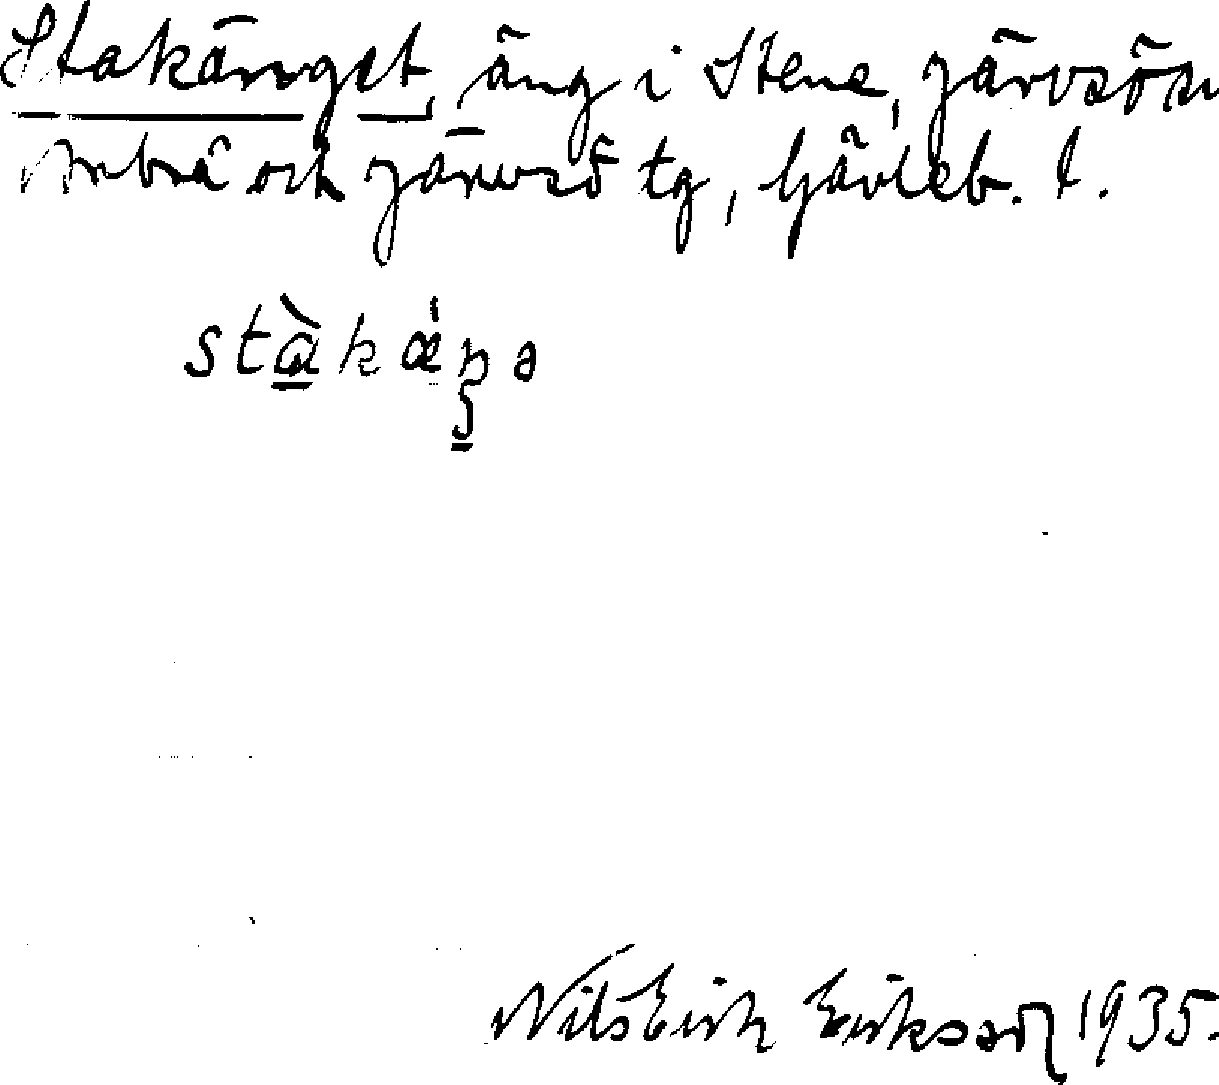 Stakänget, äng i Stene, Järvsö sn
Arbrå och Järvsö tg, Gävleb. l.
stàkáŋə
Nils Erik Eriksson 1935.